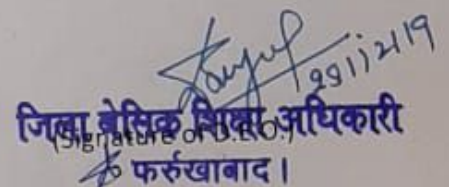 29/12/19
जिला बेसिक शिक्षा अधिकारी
(Signature of D.E.O.)
फर्रुखाबाद।